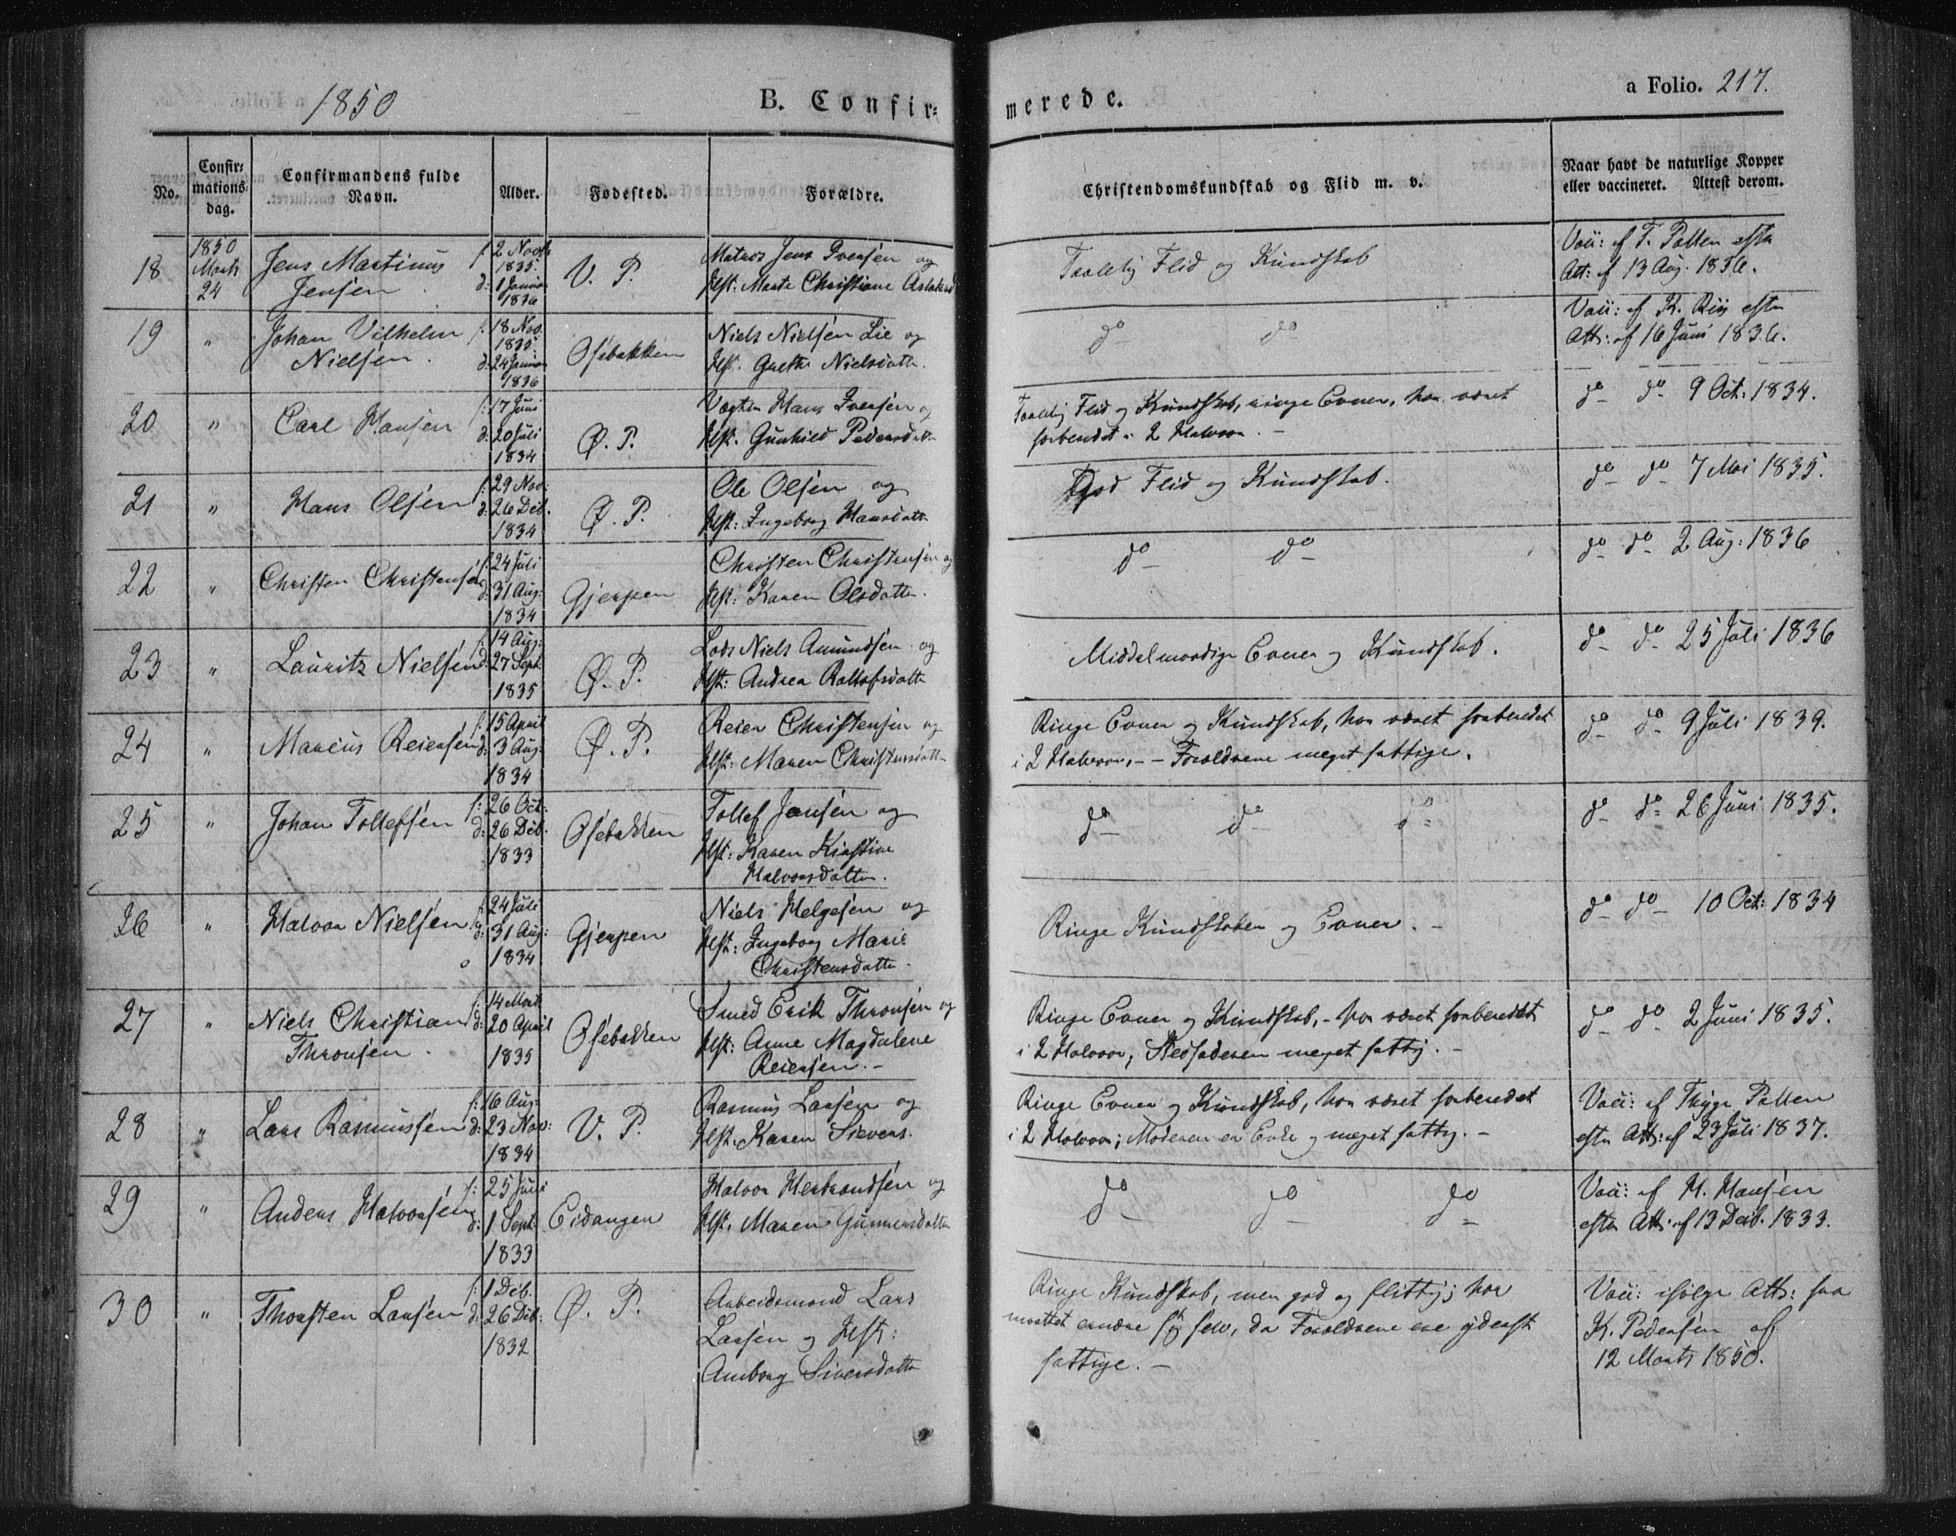 1850
B. Confir=
merede.
a Folio. 217.
No.
Confir=
mations=
dag.
Confirmandens fulde
Navn.
Alder.
Fødested.
Forældre.
Christendomskundskab og Flid m. v.
Naar havt de naturlige Kopper
eller vaccineret. Attest derom.
18
1850
Marts
24
Jens Martinus
Jensen
f: 2 Novb
1835.
d: 1 Januar
1836
V. P.
Matros Jens Iversen og
Hst: Marte Christiane
Taalelig Flid og Kundskab
Vac: af T. Palten efter
Att: af 13 Aug. 1836.
19
"
Johan Vilhelm
Nielsen.
f: 18 Nov.
1835
d: 24 Januar
1836
Osebakken
Niels Nielsen Lie og
Hst. Grethe Nielsdatte
do do
Vac: af K. Riis efter
Att: af 16 Juni 1836.
20
"
Carl Hansen
f: 17 Juni
d: 20 Juli
1834
Ø. P.
Vægter Hans Iversen og
Hst. Gunhild Pedersdatte
Taalelig Flid og Kundskab, ringe Evner, har været
forberedet i 2 Halvaar. -
do do 9 Oct: 1834.
21
"
Hans Olsen
f: 29 Nov:
d: 26 Deb.
1834
Ø. P.
Ole Olsen og
Hst: Ingeborg Hansdatte
God Flid og Kundskab.
do do 7 Mai 1835.
22
"
Christen Christensen
f: 24 Juli
d: 31 Aug:
1834
Gjerpen
Christen Christensen og
Hst: Karen Olsdatte.
do do
do do 2 Aug: 1836
23
"
Lauritz Nielsen
f: 14 Aug:
d: 27 Sept.
1835
Ø. P.
Lods Niels Amundsen og
Hst: Andrea Rollofsdatte
Middelmaadige Evner og Kundskab.
do do 25 Juli 1836
24
"
Marcus Reiersen
f: 15 April
d: 3 Aug:
1834
Ø. P.
Reier Christensen og
Hst: Maren Christensdatte
Ringe Evner og Kundskab, har været forberedet
i 2 Halvaar. - Forældrene meget fattige.
do do 9 Juli 1839.
25
"
Johan Tollefsen
f: 26 Oct:
d: 26 Deb.
1833
Osebakken
Tollef Jansen og
Hst: Karen Kirstine
Halvorsdatte.
do do do
do do 26 Juni 1835.
26
"
Halvor Nielsen
f: 24 Juli
d: 31 Aug:
1834
Gjerpen
Niels Helgesen og
Hst: Ingeborg Marie
Christensdatte.
Ringe Kundskaber og Evner. -
do do 10 Oct: 1834
27
"
Niels Christian
Thronsen.
f: 14 Marts
d: 20 April
1835
Osebakken
Smed Erik Thronsen og
Hst: Anne Magdalene
Reiersen. -
Ringe Evner og Kundskab, - har været forberedet
i 2 Halvaar, Stedfaderen meget fattig. -
do do 2 Juni 1835.
28
"
Lars Rasmussen
f: 16 Aug:
d: 23 Nov:
1834
V. P.
Rasmus Larsen og
Hst: Karen Sievers.
Ringe Evner og Kundskab, har været forberedet
i 2 Halvaar; Moderen er Enke og meget fattig. -
Vac: af Thyge Palten
efter Att: af 23 Juli 1837.
29
"
Anders Halvorsen
f: 25 Juli
d: 1 Sept:
1833
Eidanger
Halvor Herbrandsen og
Hst. Maren Gunnersdatte
do do do
Vac: af H. Hansen
efter Att: af 13 Decb. 1833.
30
"
Thorsten Larsen
f: 1 Deb.
d: 26 Deb:
1832
Ø. P.
Arbeidsmand Lars
Larsen og Hst:
Amborg Siversdatte
Ringe Kundskab, men god og flittig; har
maattet ernære sig selv, da Forældrene ere yderst
fattige. -
Vac: ifølge Att: fra
K. Pedersen af
12 Marts 1850.